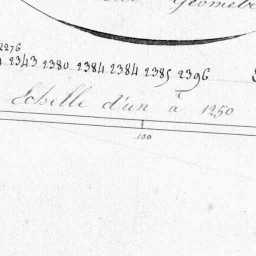 2276
2343 2380 2384 2384 2385 2396
Echelle d'un à 1250
100